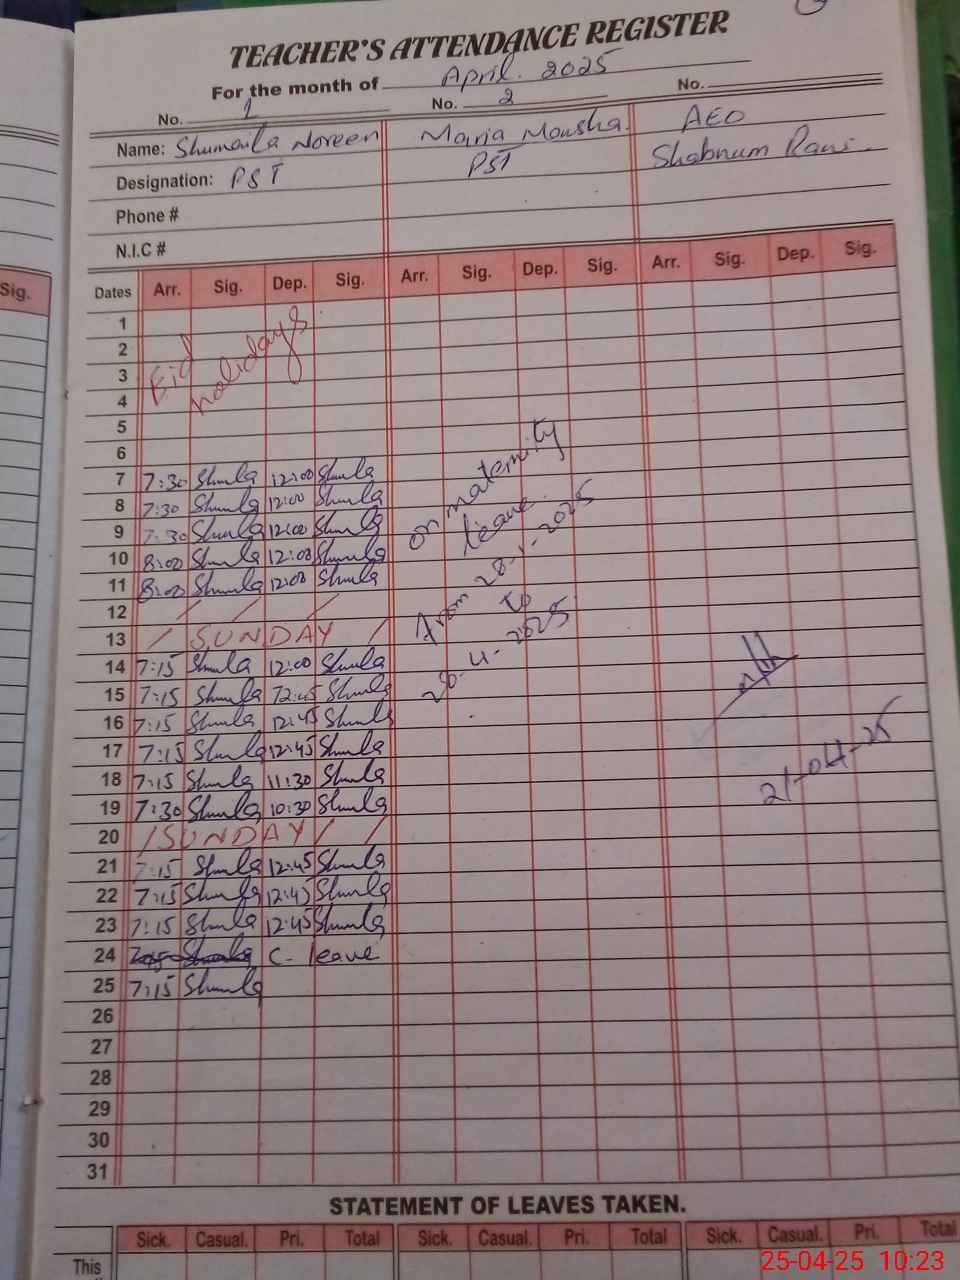 TEACHER'S ATTENDANCE REGISTER
For the month of April. 2025
No. 1 No. 2 No.
Name: Shumaila Noreen Maria Mousha. AEO
Designation: PST PST Shabnum Rani
Phone #
N.I.C #
Sig.
Dates Arr. Sig. Dep. Sig. Arr. Sig. Dep. Sig. Arr. Sig. Dep. Sig.
1
2
3
4
Eid holidays
5
6
7 7:30 Shumla 12:00 Shumla
8 7:30 Shumla 12:00 Shumla
9 7:30 Shumla 12:00 Shumla
10 8:00 Shumla 12:00 Shumla
11 8:00 Shumla 12:00 Shumla
on maternity
leave
from 28-1-2025
to
28-4-2025
12
13 SUNDAY
14 7:15 Shumla 12:00 Shumla
15 7:15 Shumla 12:45 Shumla
16 7:15 Shumla 12:45 Shumla
17 7:15 Shumla 12:45 Shumla
18 7:15 Shumla 11:30 Shumla
19 7:30 Shumla 10:30 Shumla
21-04-25
20 SUNDAY
21 7:15 Shumla 12:45 Shumla
22 7:15 Shumla 12:45 Shumla
23 7:15 Shumla 12:45 Shumla
24 C- leave
25 7:15 Shumla
26
27
28
29
30
31
STATEMENT OF LEAVES TAKEN.
Sick. Casual. Pri. Total Sick. Casual. Pri. Total Sick. Casual. Pri. Total
This
25-04-25 10:23